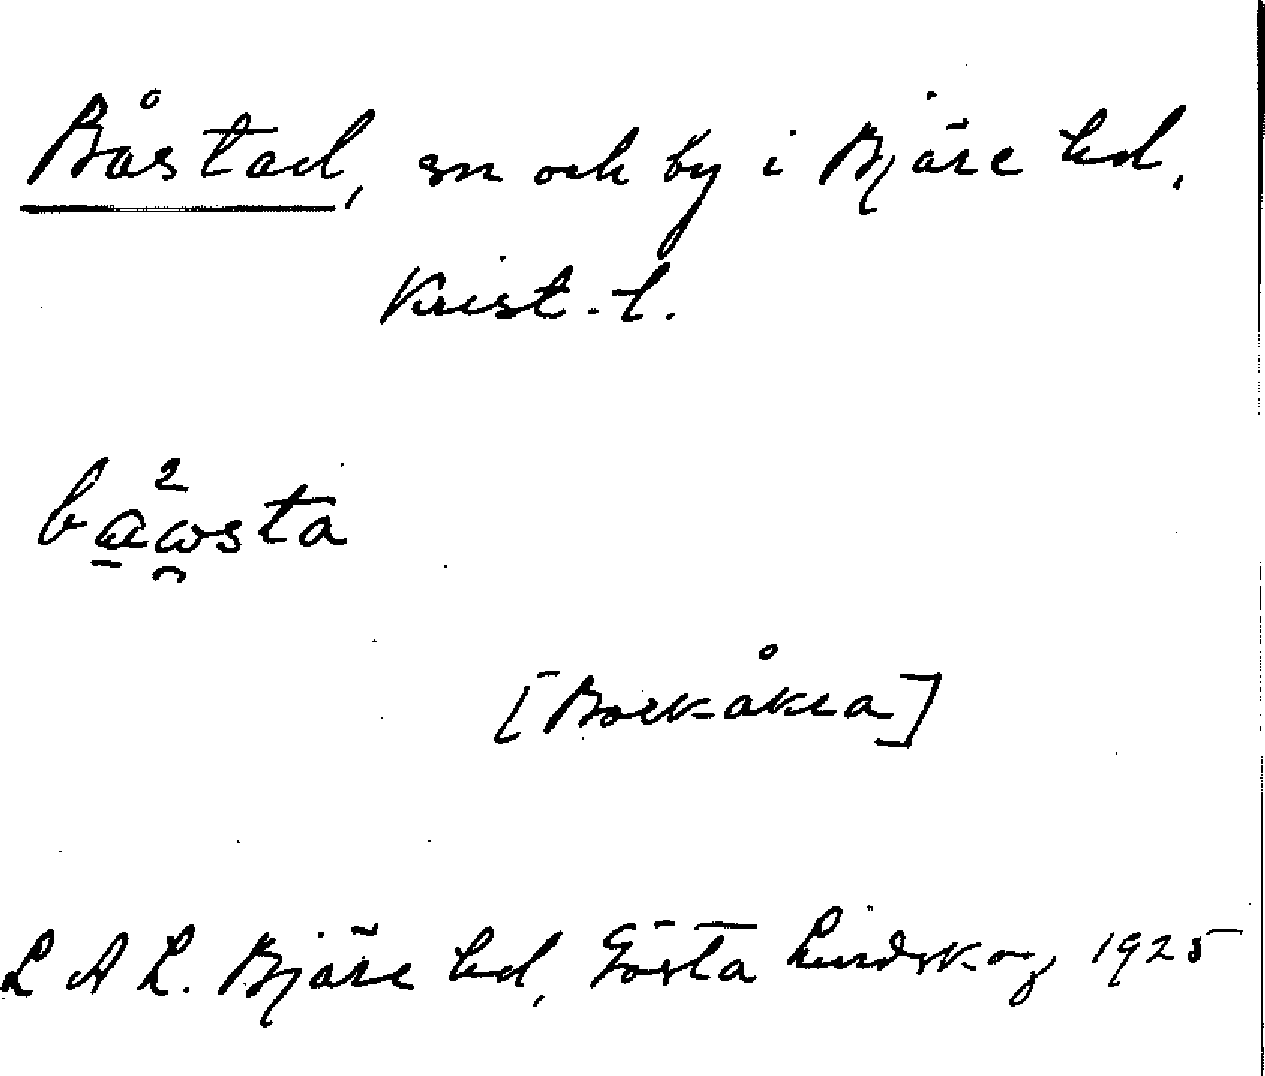 Båstad, sn och by i Bjäre hd,
Krist. l.
[Borkåkra]
L A L. Bjäre hd, Gösta Lindskog 1925